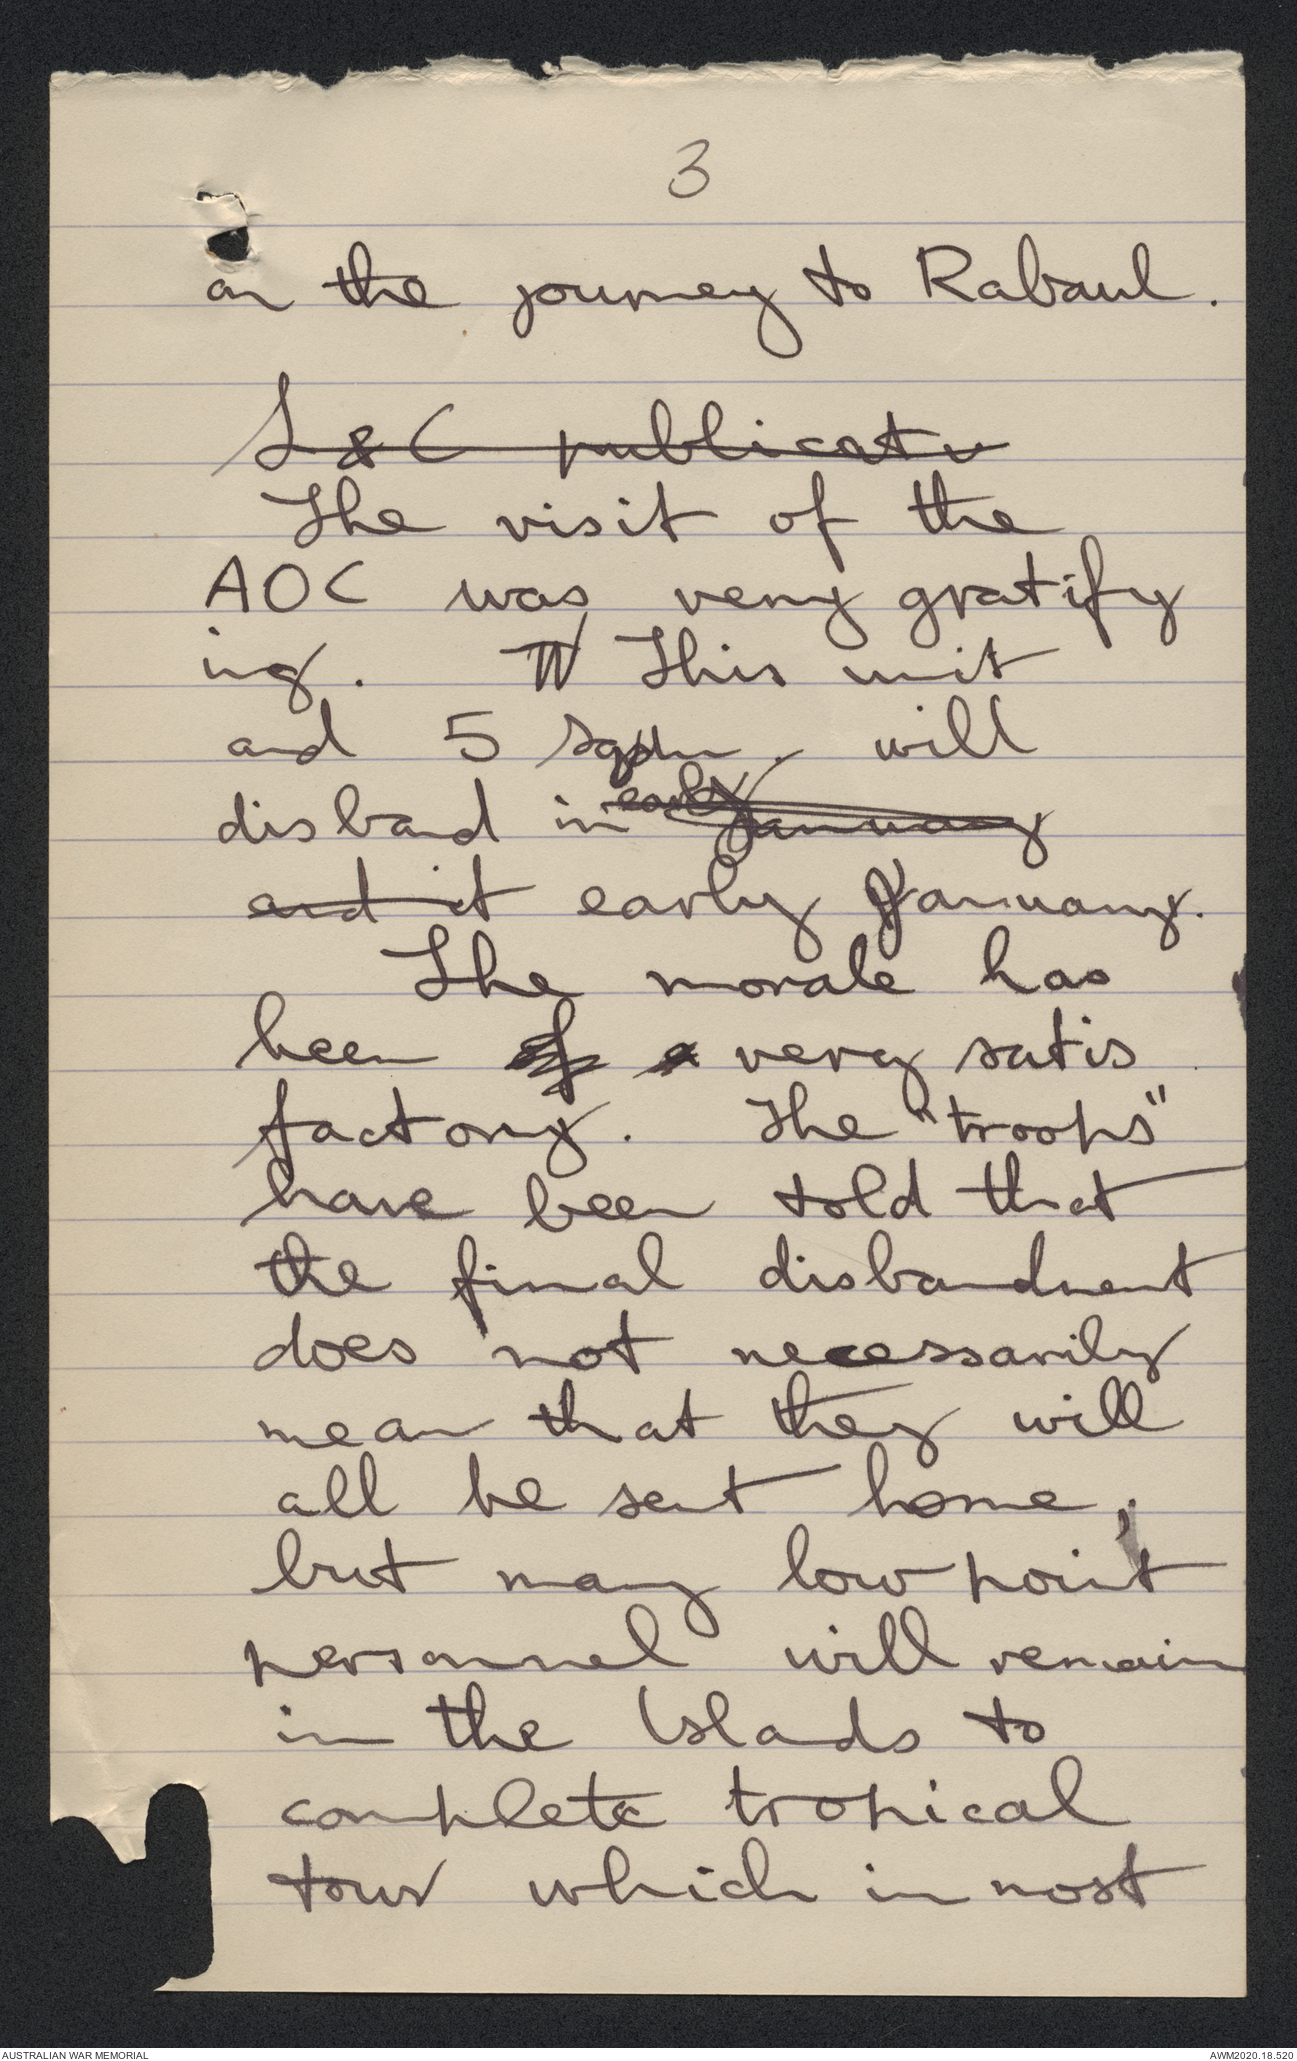 3
on the journey to Rabaul.
L & C publicatv
The visit of the
AOC was very gratify
ing. This unit
and 5 Sqdn. will
disband in early January
and it early January.
The morale has
been of a very satis
factory. The "troops"
have been told that
the final disbandment
does not necessarily
mean that they will
all be sent home,
but many low point
personnel will remain
in the Islands to
complete tropical
tour which in most
AUSTRALIAN WAR MEMORIAL
AWM2020.18.520